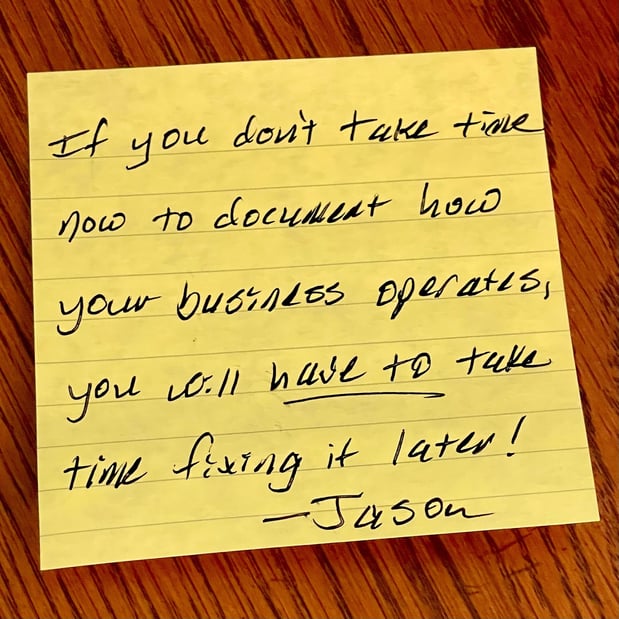 If you don't take time
now to document how
your business operates,
you will have to take
time fixing it later!
-Jason